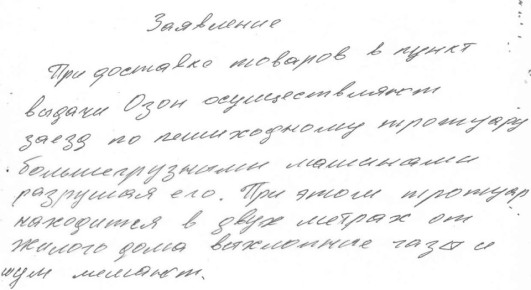 Заявление
При доставке товаров в пункт
выдачи Озон осуществляют
заезд по пешиходному тротуару
большегрузными машинами
разрушая его. При этом тротуар
находится в двух метрах от
жилого дома выхлопные газы и
шум мешают.